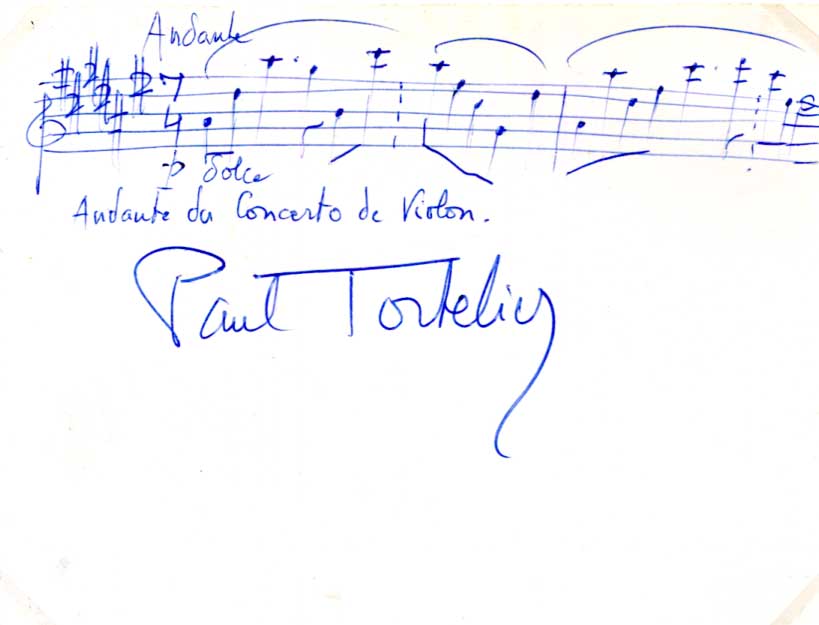 Andante
7
4
p dolce
Andante du Concerto de Violon.
Paul Tortelier